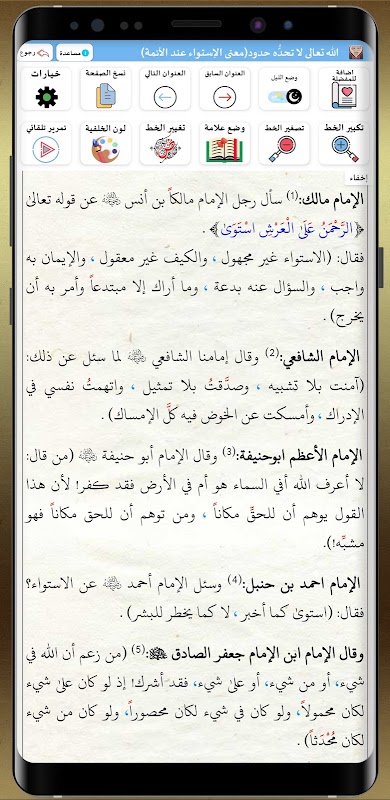 الله تعالى لا تحدّه حدود(معنى الإستواء عند الأئمة)
مساعدة
رجوع
اضافة للمفضلة
وضع الليل
العنوان السابق
العنوان التالي
نسخ الصفحة
خيارات
تكبير الخط
تصغير الخط
وضع علامة
تغيير الخط
لون الخلفية
تمرير تلقائي
إخفاء
الإمام مالك:(1) سأل رجل الإمام مالكاً بن أنس ﵁ عن قوله تعالى
﴿الرَّحْمَنُ عَلَى الْعَرْشِ اسْتَوَىٰ﴾ .
فقال: (الاستواء غير مجهول ، والكيف غير معقول ، والإيمان به
واجب ، والسؤال عنه بدعة ، وما أراك إلا مبتدعاً وأمر به أن
يخرج) .
الإمام الشافعي:(2) وقال إمامنا الشافعي ﵁ لما سئل عن ذلك:
(آمنت بلا تشبيه ، وصدَّقتُ بلا تمثيل ، واتهمتُ نفسي في
الإدراك ، وأمسكت عن الخوض فيه كلَّ الإمساك) .
الإمام الأعظم ابوحنيفة:(3) وقال الإمام أبو حنيفة ﵁ (من قال:
لا أعرف الله أفي السماء هو أم في الأرض فقد كفر! لأن هذا
القول يوهم أن للحقِّ مكاناً ، ومن توهم أن للحق مكاناً فهو
مشبِّه!).
الإمام احمد بن حنبل:(4) وسئل الإمام أحمد ﵁ عن الاستواء؟
فقال: (استوىٰ كما أخبر ، لا كما يخطر للبشر) .
وقال الإمام ابن الإمام جعفر الصادق ﵇:(5) (من زعم أن الله في
شيء، أو من شيء ، أو علىٰ شيء، فقد أشرك! إذ لو كان علىٰ شيء
لكان محمولاً، ولو كان في شيء لكان محصوراً، ولو كان من شيء
لكان مُحْدَثاً) .